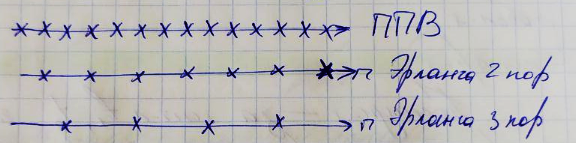 ППВ
п Эрланга 2 пор
п Эрланга 3 пор